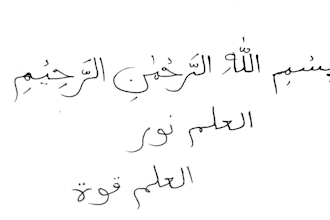 بِسْمِ اللّٰهِ الرَّحْمٰنِ الرَّحِيْمِ
العلم نور
العلم قوة